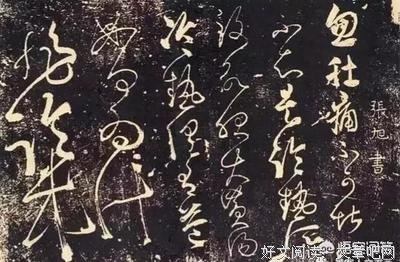 忽肚痛不可堪
張旭書
不知是冷熱所
致欲服大黃湯
冷熱俱有益
如何為計
好文阅读-文章吧网
悟空问答